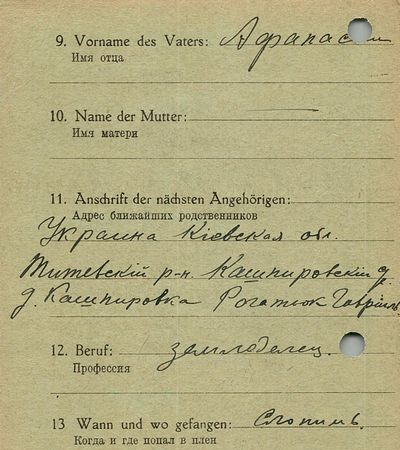 9. Vorname des Vaters: Афанасий
Имя отца
10. Name der Mutter:
Имя матери
11. Anschrift der nächsten Angehörigen:
Адрес ближайших родственников
Украина Кіевская обл.
р-н. Кашпировскій
д. Кашпировка Рогатюк Гавріил
12. Beruf: земледелец.
Профессия
13 Wann und wo gefangen: Слонимъ
Когда и где попал в плен